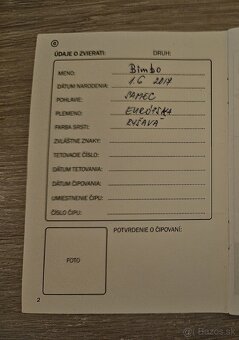 6
ÚDAJE O ZVIERATI: DRUH:
MENO: Bimbo
DÁTUM NARODENIA: 1.6 2017
POHLAVIE: SAMEC
PLEMENO: EURÓPSKA
FARBA SRSTI: RYŠAVA
ZVLÁŠTNE ZNAKY:
TETOVACIE ČÍSLO:
DÁTUM TETOVANIA:
DÁTUM ČIPOVANIA:
UMIESTNENIE ČIPU:
ČÍSLO ČIPU:
POTVRDENIE O ČIPOVANÍ:
FOTO
2
Bazos.sk